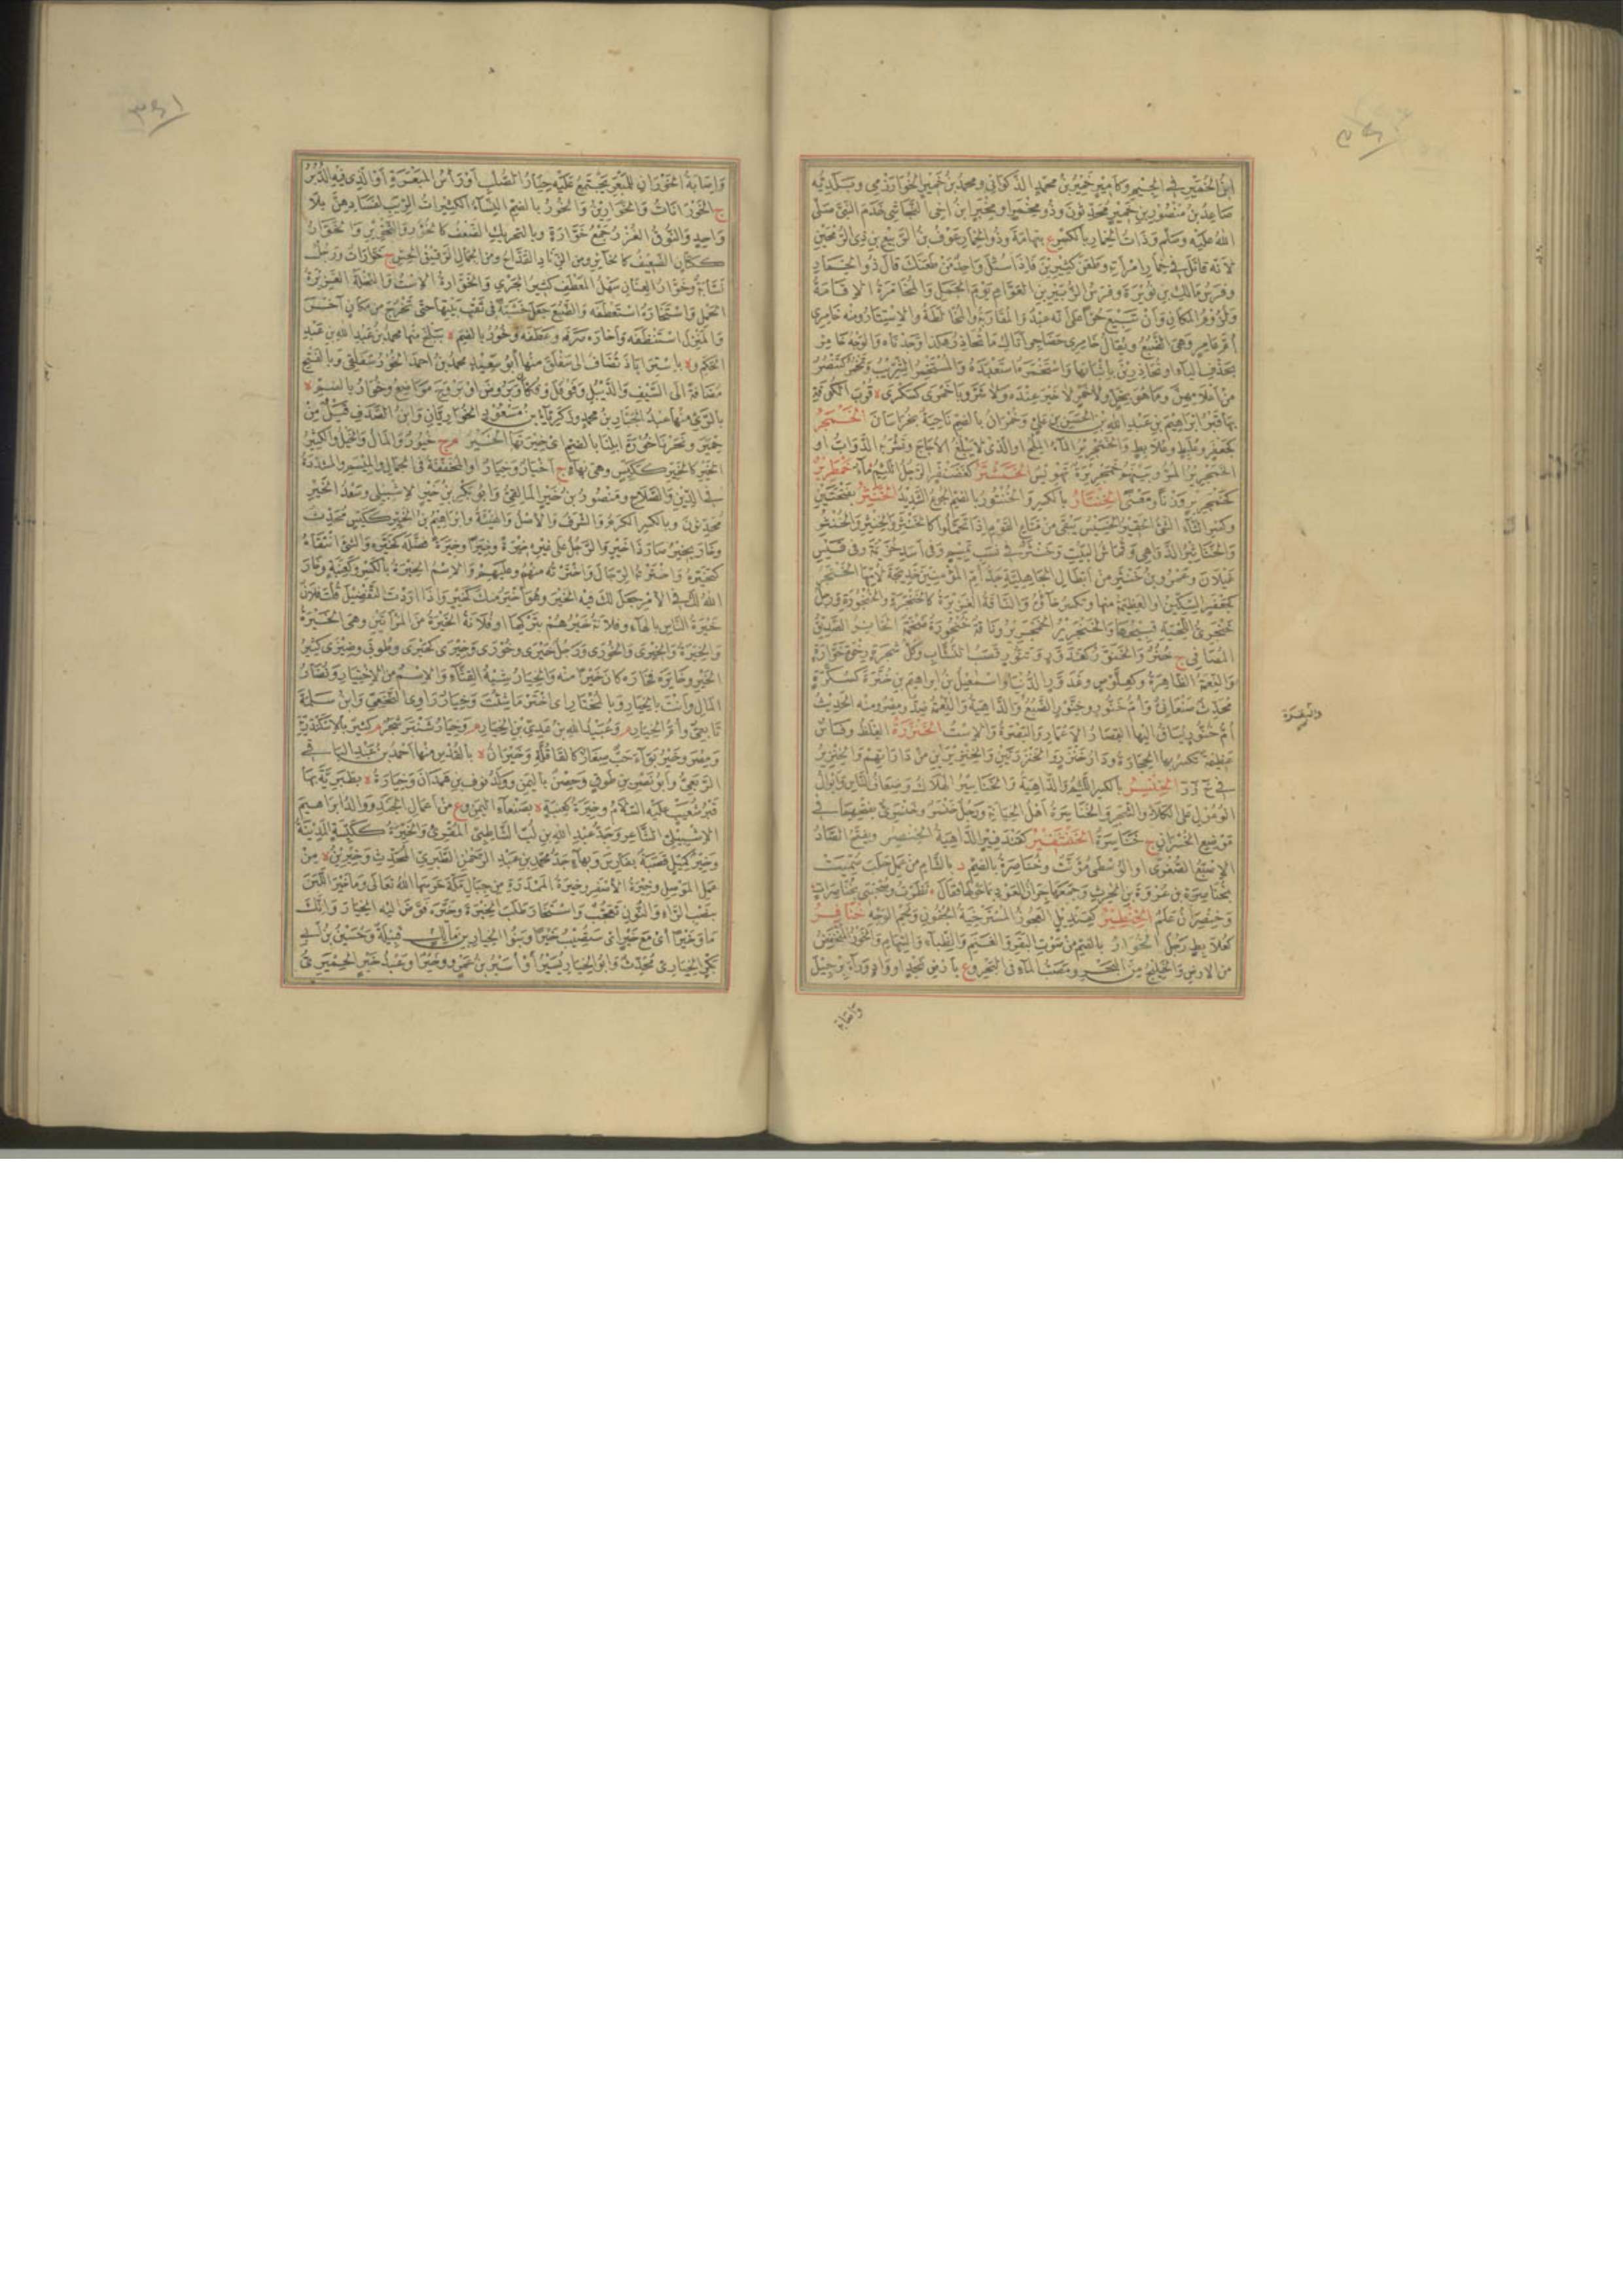 ابن الخمير في الجيم وكامير خمير بن محمد الذكواني ومحمد بن خمير الخوارزمي وبلديه
صاعد بن منصور بن خمير محدثون وذو مخمر او مخبر ابن اخي النجاشي خدم النبي صلى
الله عليه وسلم وذات الخمار بالكسر ع بتهامة وذو الخمار عوف بن الربيع بن ذي الرمحين
لانه قاتل في خمار امرأته وطعن كثيرين فاذا سئل واحد من طعنك قال ذو الخمار
وفرس مالك بن نويرة وفرس الزبير بن العوام يوم الجمل والمخامرة الاقامة
ولزوم المكان وان تبيع حرا على انه عبد والمقاربة والمخالطة والاستتار ومنه خامري
ام عامر وهي الضبع ويقال خامري حضاجر اتاك ما تحاذر هكذا وجدناه والوجه خامر
بحذف الياء او تحاذرين باثباتها واستخمره استعبده والمستخمر الشريب وتخمر كتنصر
من اعلامهن وما هو بخل ولا خمر لا خير عنده ولا شر وباخمرى كسكرى ة قرب الكوفة
بها قبر ابراهيم بن عبد الله بن الحسن بن علي وخمران بالضم ناحية بخراسان الخمجر
كجعفر وعلبط وعلابط والخمجرير الماء الملح او الذي لا يبلغ الاجاج وتشربه الدواب او
الخمجرير المر وبينهم خمجريرة تهويس الخمشتر كغضنفر الرجل اللئيم ماء خمطرير
كخمجرير وزنا ومعنى الخنتار بالكسر والخنتور بالضم الجوع الشديد الخنثر بفتحتين
وكسر الثاء الشيء الحقير الخسيس يبقى من متاع القوم اذا تحملوا كالخنثر والخنثر والخنثر
والخناثير الدواهي وقماش البيت وخنثر في نسب تميم وفي اسد خزيمة وفي قيس
عيلان وعمرو بن خنثر من ابطال الجاهلية جد ام المؤمنين خديجة لامها الخنجر
كجعفر السكين او العظيمة منها وتكسر خاؤه والناقة الغزيرة كالخنجرة والخنجورة ورجل
خنجري اللحية قبيحها والخنجرير الخمجرير وناقة خنجورة ضخمة الخانر الصديق
المصافي ج خنر والخنور كعذور وتنور قصب النشاب وكل شجرة رخوة خوارة
والنعمة الظاهرة وكعلوص وعذور الدنيا واسمعيل بن ابراهيم بن خنرة كسكرة
محدث صنعاني وام خنور وخنور الضبع والداهية والنعمة ضد ومصر ومنه الحديث
ام خنور يساق اليها القصار الاعمار والبقرة والاست الخنزرة الغلظ وفأس
غليظة تكسر بها الحجارة ودارة خنزر والخنزرتين والخنزيرين من داراتهم والخنزير
في خ ز ر الخنسر بالكسر اللئيم والداهية والخناسير الهلاك وضعاف الناس وابوال
الوعول على الكلاء والشجر والخناسرة اهل الخيانة ورجل خنسر وخنسري بفتحهما في
موضع الخسران ج خناسرة الخنشفير كقندفير الداهية الخنصر وتفتح الصاد
الاصبع الصغرى او الوسطى مؤنث وخناصرة بالضم د بالشام من عمل حلب سميت
بخناصرة بن عروة بن الحرث وجمعها جران العود بما حولها فقال نظرت وصحبتي بخناصرات
وخنصران علم الخنطير كقنديل العجوز المسترخية الجفون ولحم الوجه خنافر
كعلابط رجل الخوار بالضم من صوت البقر والغنم والظباء والسهام والخور المنخفض
من الارض والخليج من البحر ومصب الماء في البحر وع بارض نجد او واد وراء برجيل
والبقرة
واصابة
واصابة الخوران للمبعر يجتمع عليه حتار الصلب او رأس المبعرة او الذي فيه الدبر
ج الخورانات والخوارين والخور بالضم النساء الكثيرات الريب لفسادهن بلا
واحد والنوق الغزر جمع خوارة وبالتحريك الضعف كالخؤور والتخوير والخوار
ككتان الضعيف كالخائر ومن الزناد القداح ومن الجمال الرقيق الحسن ج خوارات ورجل
نسابة وخوار العنان سهل المعطف كثير الجري والخوارة الاست والنخلة الغزيرة
الحمل واستخاره استعطفه والضبع جعل خشبة في ثقب بيتها حتى تخرج من مكان آخر
والمنزل استنظفه واخاره صرفه وعطفه وخور بالضم ة ببلخ منها محمد بن عبد الله بن عبد
الحكم وة باستراباذ تضاف الى سفلق منها ابو سعيد محمد بن احمد الخورسفلقي وبالفتح
مضافة الى السيف والديبل وفوفل وفكان وبروص او بروج مواضع وخوار بالضم ة
بالري منها عبد الجبار بن محمد وزكرياء بن مسعود الخواريان وابن الصدف قيل من
حمير ونحرنا خورة ابلنا بالضم اي خيرتها الخير م ج خيور والمال والخيل والكثير
الخير كالخير ككيس وهي بهاء ج اخيار وخيار او المخففة في الجمال والميسم والمشددة
في الدين والصلاح ومنصور بن خير المالقي وابو بكر بن خير الاشبيلي وسعد الخير
محدثون وبالكسر الكرم والشرف والاصل والهيئة وابراهيم بن الخير ككيس محدث
وخار يخير صار ذا خير والرجل على غيره خيرة وخيرا وخيرة فضله كخيره والشيء انتقاه
كتخيره واخترته الرجال واخترته منهم وعليهم والاسم الخيرة بالكسر وكعنبة وخار
الله لك في الامر جعل لك فيه الخير وهو اخير منك كخير واذا اردت التفضيل قلت فلان
خيرة الناس بالهاء وفلانة خيرهم بتركها او فلانة الخيرة من المرأتين وهي الخيرة
والخيرة والخيرى والخورى ورجل خيرى وخورى وخيرى كحيرى وطوبى وضيزى كثير
الخير وخايره فخاره كان خيرا منه والخيار شبه القثاء والاسم من الاختيار ونضار
المال وانت بالخيار وبالمختار اي اختر ما شئت وخيار راوي النخعي وابن سلمة
تابعي وام الخيار م وعبيد الله بن عدي بن الخيار م وخيار شنبر شجر م كثير بالاسكندرية
ومصر وخيربوا حب صغار كالقاقلة وخيران ة بالقدس منها احمد بن عبد الباقي
الربعي وابو نصر بن طوق وحصن باليمن وولد نوف بن همدان وخيارة ة بطبرية بها
قبر شعيب عليه السلام وخيرة كعنبة ة بصنعاء اليمن وع من اعمال الجند ووالد ابراهيم
الاشبيلي الشاعر وجد عبد الله بن لب الشاطبي المقرئ والخيرة ككيسة المدينة
وخير كميل قصبة بفارس وبهاء جد محمد بن عبد الرحمن الطبري المحدث وخيرين ة من
عمل الموصل وخيرة الاصفر وخيرة الممدرة من جبال مكة حرسها الله تعالى وما خير اللبن
بنصب الراء والنون تعجب واستخار طلب الخيرة وخيره فوض اليه الخيار وانك
ما وخيرا اي مع خير اي ستصيب خيرا وبنو الخيار بن مالك قبيلة وحسين بن ابي
بكر الخياري محدث وابو الخيار يسير او اسير بن عمرو وخير او عبد خير الحميري